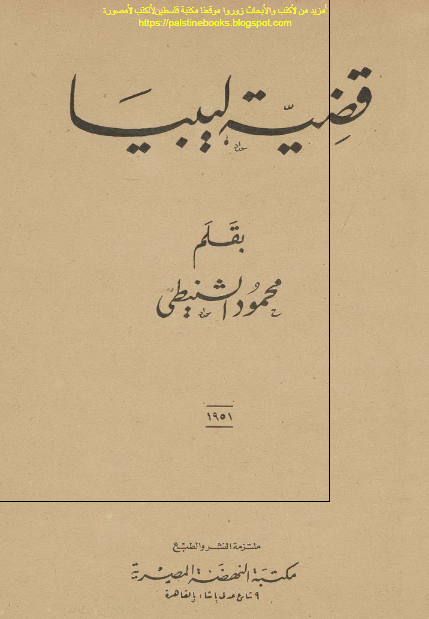 لمزيد من الكتب والأبحاث زوروا موقعنا مكتبة فلسطين للكتب المصورة
https://palstinebooks.blogspot.com
قضيّة ليبيا
بقلم
محمود الشنيطى
١٩٥١
ملتزمة النشر والطبع
مكتبة النهضة المصرية
٩ شارع عدلى باشا بالقاهرة